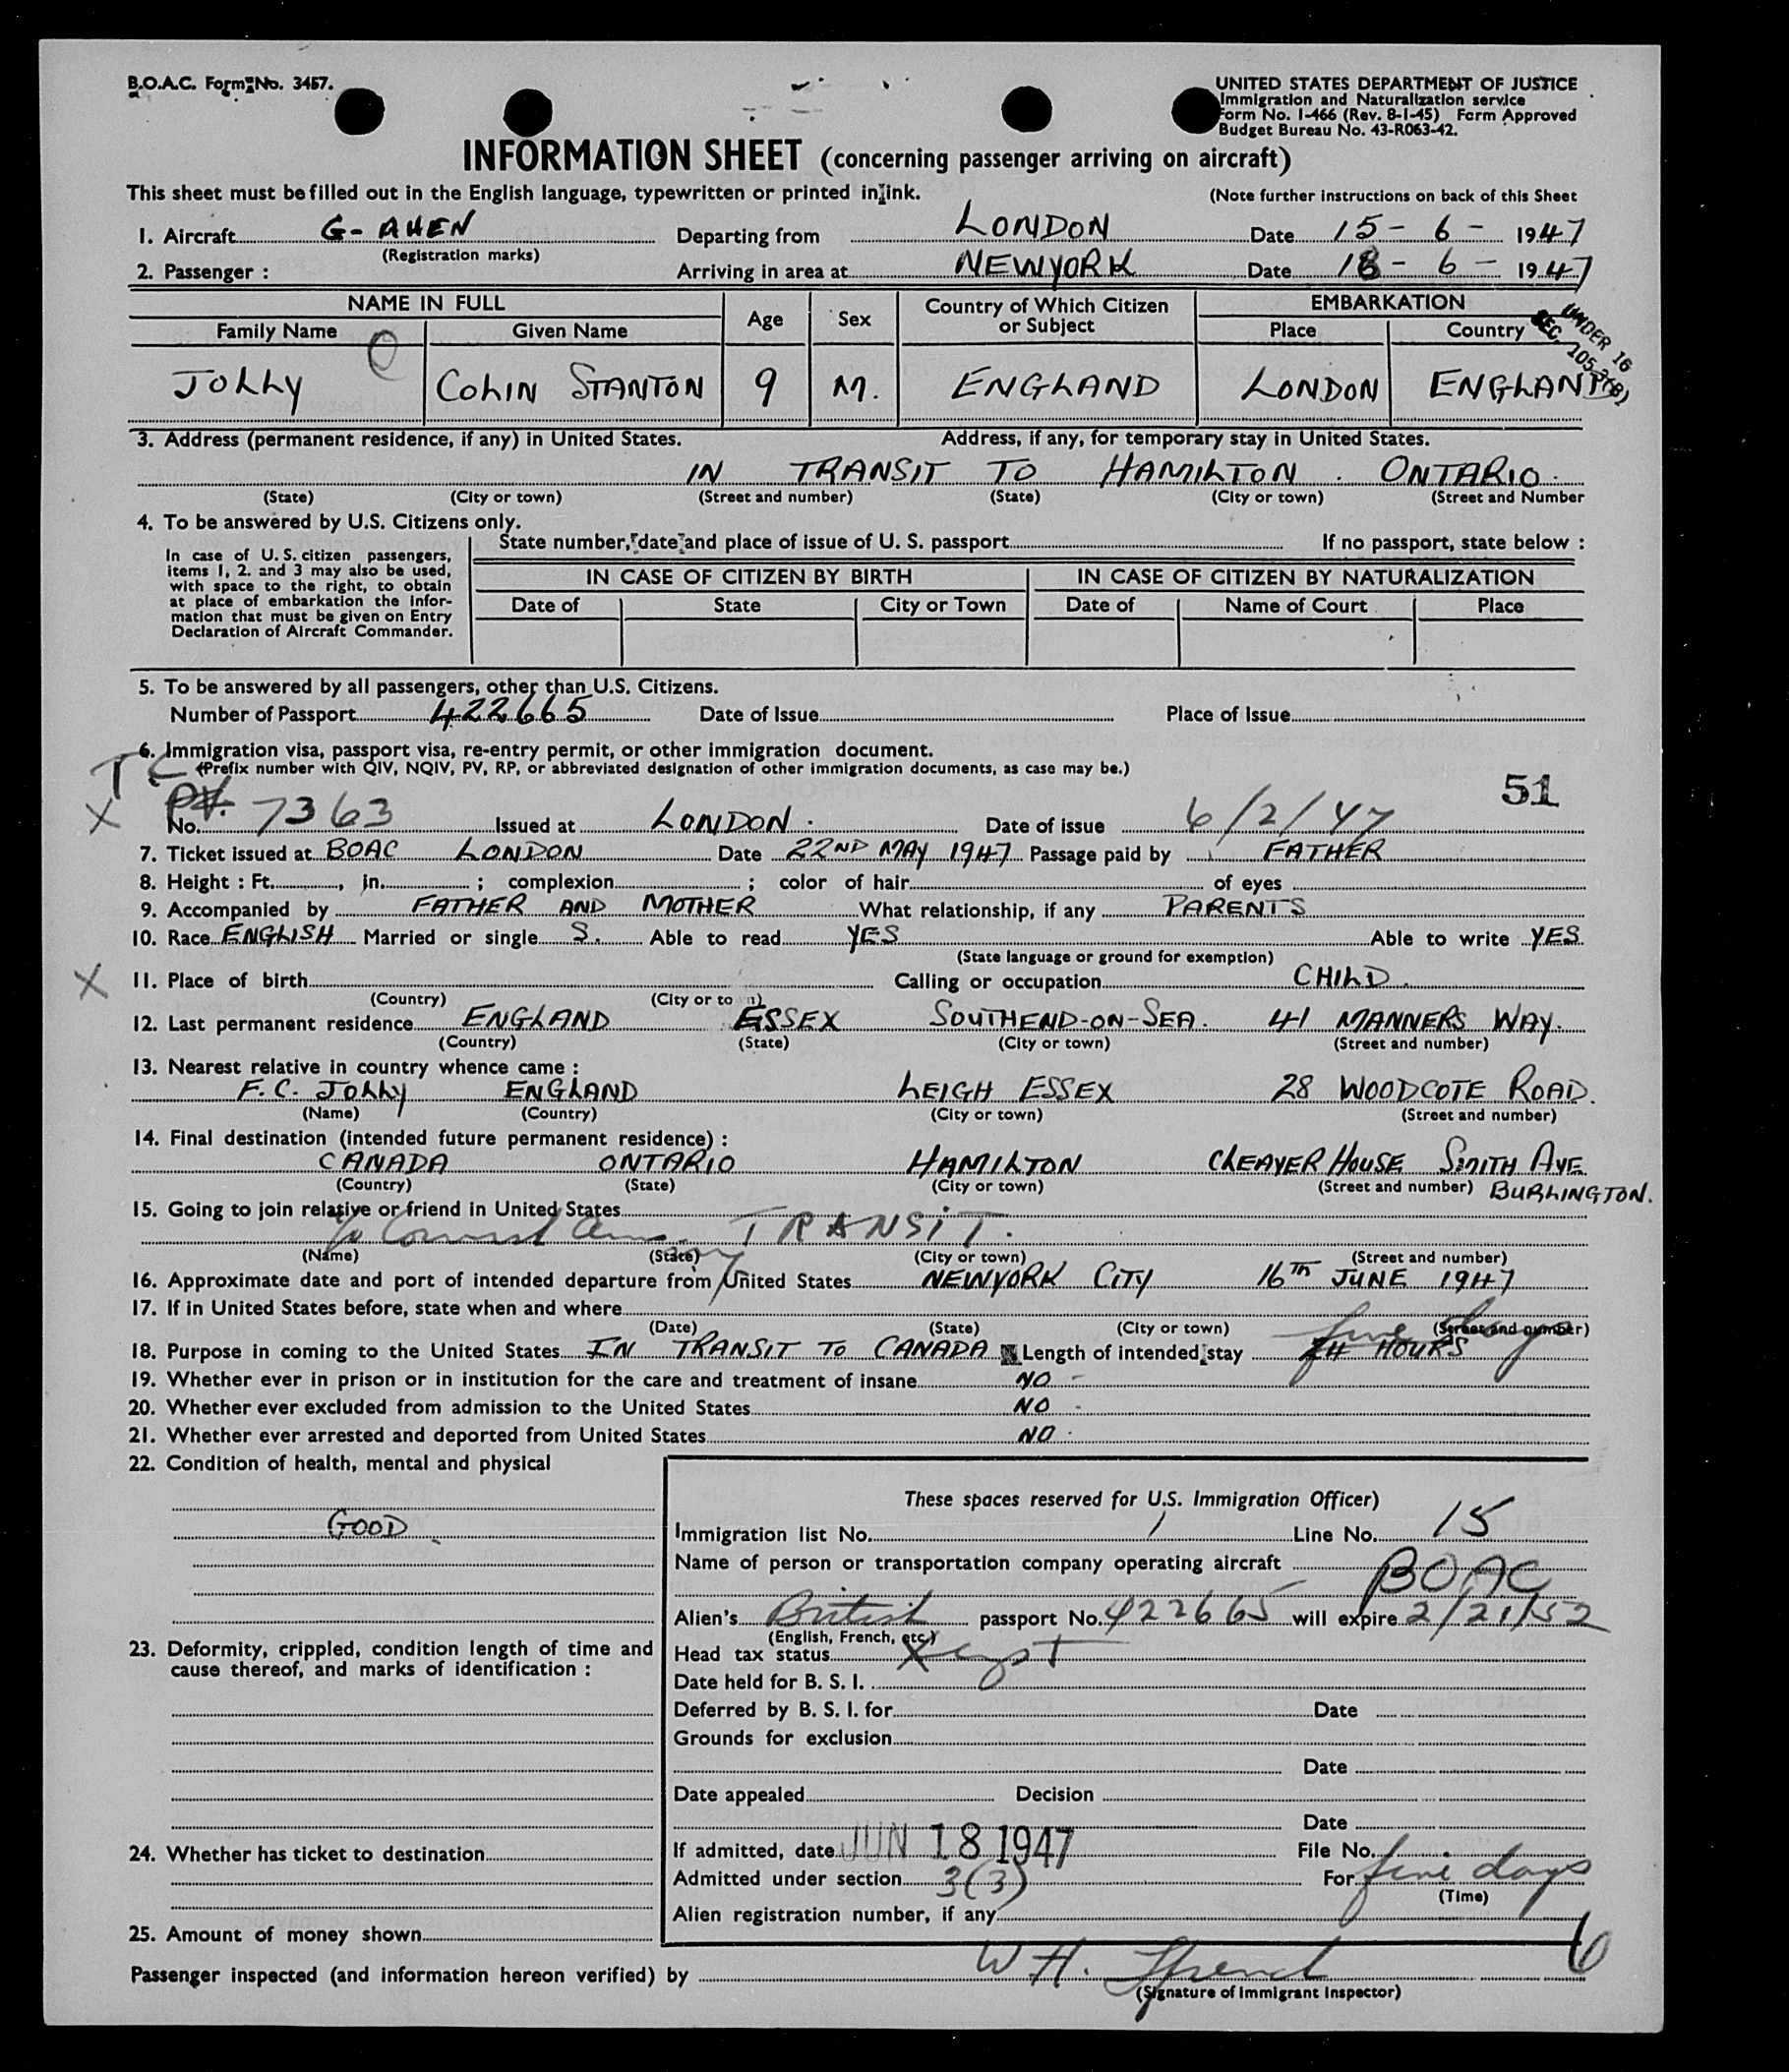 B.O.A.C. Form No. 3457.
UNITED STATES DEPARTMENT OF JUSTICE
Immigration and Naturalization service
Form No. I-466 (Rev. 8-1-45) Form Approved
Budget Bureau No. 43-R063-42.
INFORMATION SHEET (concerning passenger arriving on aircraft)
This sheet must be filled out in the English language, typewritten or printed in ink. (Note further instructions on back of this Sheet
1. Aircraft G-AHEN Departing from LONDON Date 15-6-1947
(Registration marks)
2. Passenger : Arriving in area at NEWYORK Date 18-6-1947
NAME IN FULL Age Sex Country of Which Citizen or Subject EMBARKATION
Family Name Given Name Place Country
UNDER 16
SEC. 105.3(B)
JOLLY COLIN STANTON 9 M. ENGLAND LONDON ENGLAND
3. Address (permanent residence, if any) in United States. Address, if any, for temporary stay in United States.
IN TRANSIT TO HAMILTON. ONTARIO.
(State) (City or town) (Street and number) (State) (City or town) (Street and Number
4. To be answered by U.S. Citizens only.
In case of U.S. citizen passengers,
items 1, 2. and 3 may also be used,
with space to the right, to obtain
at place of embarkation the infor-
mation that must be given on Entry
Declaration of Aircraft Commander.
State number, date and place of issue of U. S. passport If no passport, state below :
IN CASE OF CITIZEN BY BIRTH IN CASE OF CITIZEN BY NATURALIZATION
Date of State City or Town Date of Name of Court Place
5. To be answered by all passengers, other than U.S. Citizens.
Number of Passport 422665 Date of Issue Place of Issue
6. Immigration visa, passport visa, re-entry permit, or other immigration document.
(Prefix number with QIV, NQIV, PV, RP, or abbreviated designation of other immigration documents, as case may be.)
TC
51
X PV.
No. 7363 Issued at LONDON. Date of issue 6/2/47
7. Ticket issued at BOAC LONDON Date 22ND MAY 1947 Passage paid by FATHER
8. Height : Ft. , in. ; complexion ; color of hair of eyes
9. Accompanied by FATHER AND MOTHER What relationship, if any PARENTS
10. Race ENGLISH Married or single S. Able to read YES Able to write YES
(State language or ground for exemption)
X 11. Place of birth Calling or occupation CHILD.
(Country) (City or town)
12. Last permanent residence ENGLAND ESSEX SOUTHEND-ON-SEA. 41 MANNERS WAY.
(Country) (State) (City or town) (Street and number)
13. Nearest relative in country whence came :
F.C. JOLLY ENGLAND LEIGH ESSEX 28 WOODCOTE ROAD.
(Name) (Country) (City or town) (Street and number)
14. Final destination (intended future permanent residence) :
CANADA ONTARIO HAMILTON CLEAVER HOUSE SMITH AVE
(Country) (State) (City or town) (Street and number) BURLINGTON.
15. Going to join relative or friend in United States
TRANSIT.
(Name) (State) (City or town) (Street and number)
16. Approximate date and port of intended departure from United States NEWYORK CITY 16TH JUNE 1947
17. If in United States before, state when and where
(Date) (State) (City or town) (Street and number)
five days
18. Purpose in coming to the United States IN TRANSIT TO CANADA Length of intended stay 24 HOURS
19. Whether ever in prison or in institution for the care and treatment of insane NO -
20. Whether ever excluded from admission to the United States NO -
21. Whether ever arrested and deported from United States NO.
22. Condition of health, mental and physical
GOOD.
23. Deformity, crippled, condition length of time and
cause thereof, and marks of identification :
24. Whether has ticket to destination
25. Amount of money shown
These spaces reserved for U.S. Immigration Officer)
Immigration list No. 1 Line No. 15
Name of person or transportation company operating aircraft BOAC
Alien's British passport No. 422665 will expire 2/21/52
(English, French, etc.)
Head tax status
Date held for B. S. I.
Deferred by B. S. I. for Date
Grounds for exclusion
Date
Date appealed Decision
Date
If admitted, date JUN 18 1947 File No.
Admitted under section 3(3) For five days
(Time)
Alien registration number, if any
6
Passenger inspected (and information hereon verified) by W H.
(Signature of Immigrant Inspector)